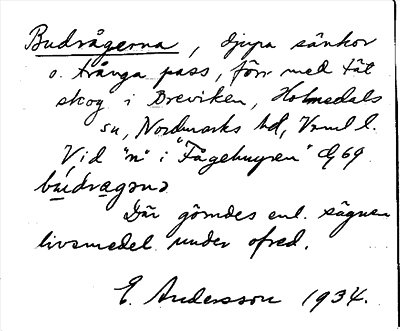 Budrågerna, djupa sänkor
o. trånga pass, förr med tät
skog i Breviken, Holmedals
sn, Nordmarks hd, Vrml l.
Vid "n" i "Fågelmyren" dg 69
bùdragəna
Där gömdes enl. sägnen
livsmedel under ofred.
E. Andersson 1934.